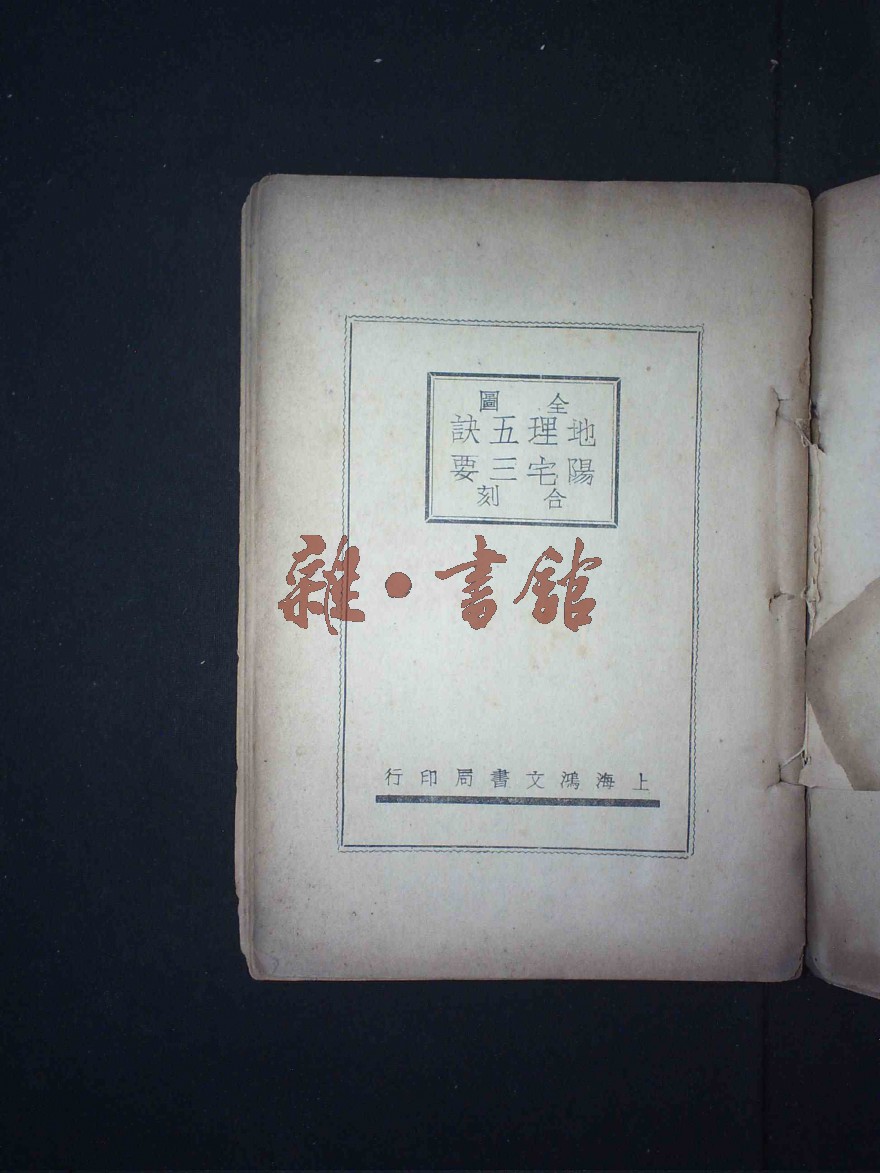 全圖
地理五訣
陽宅三要
合刻
雜·書館
上海鴻文書局印行